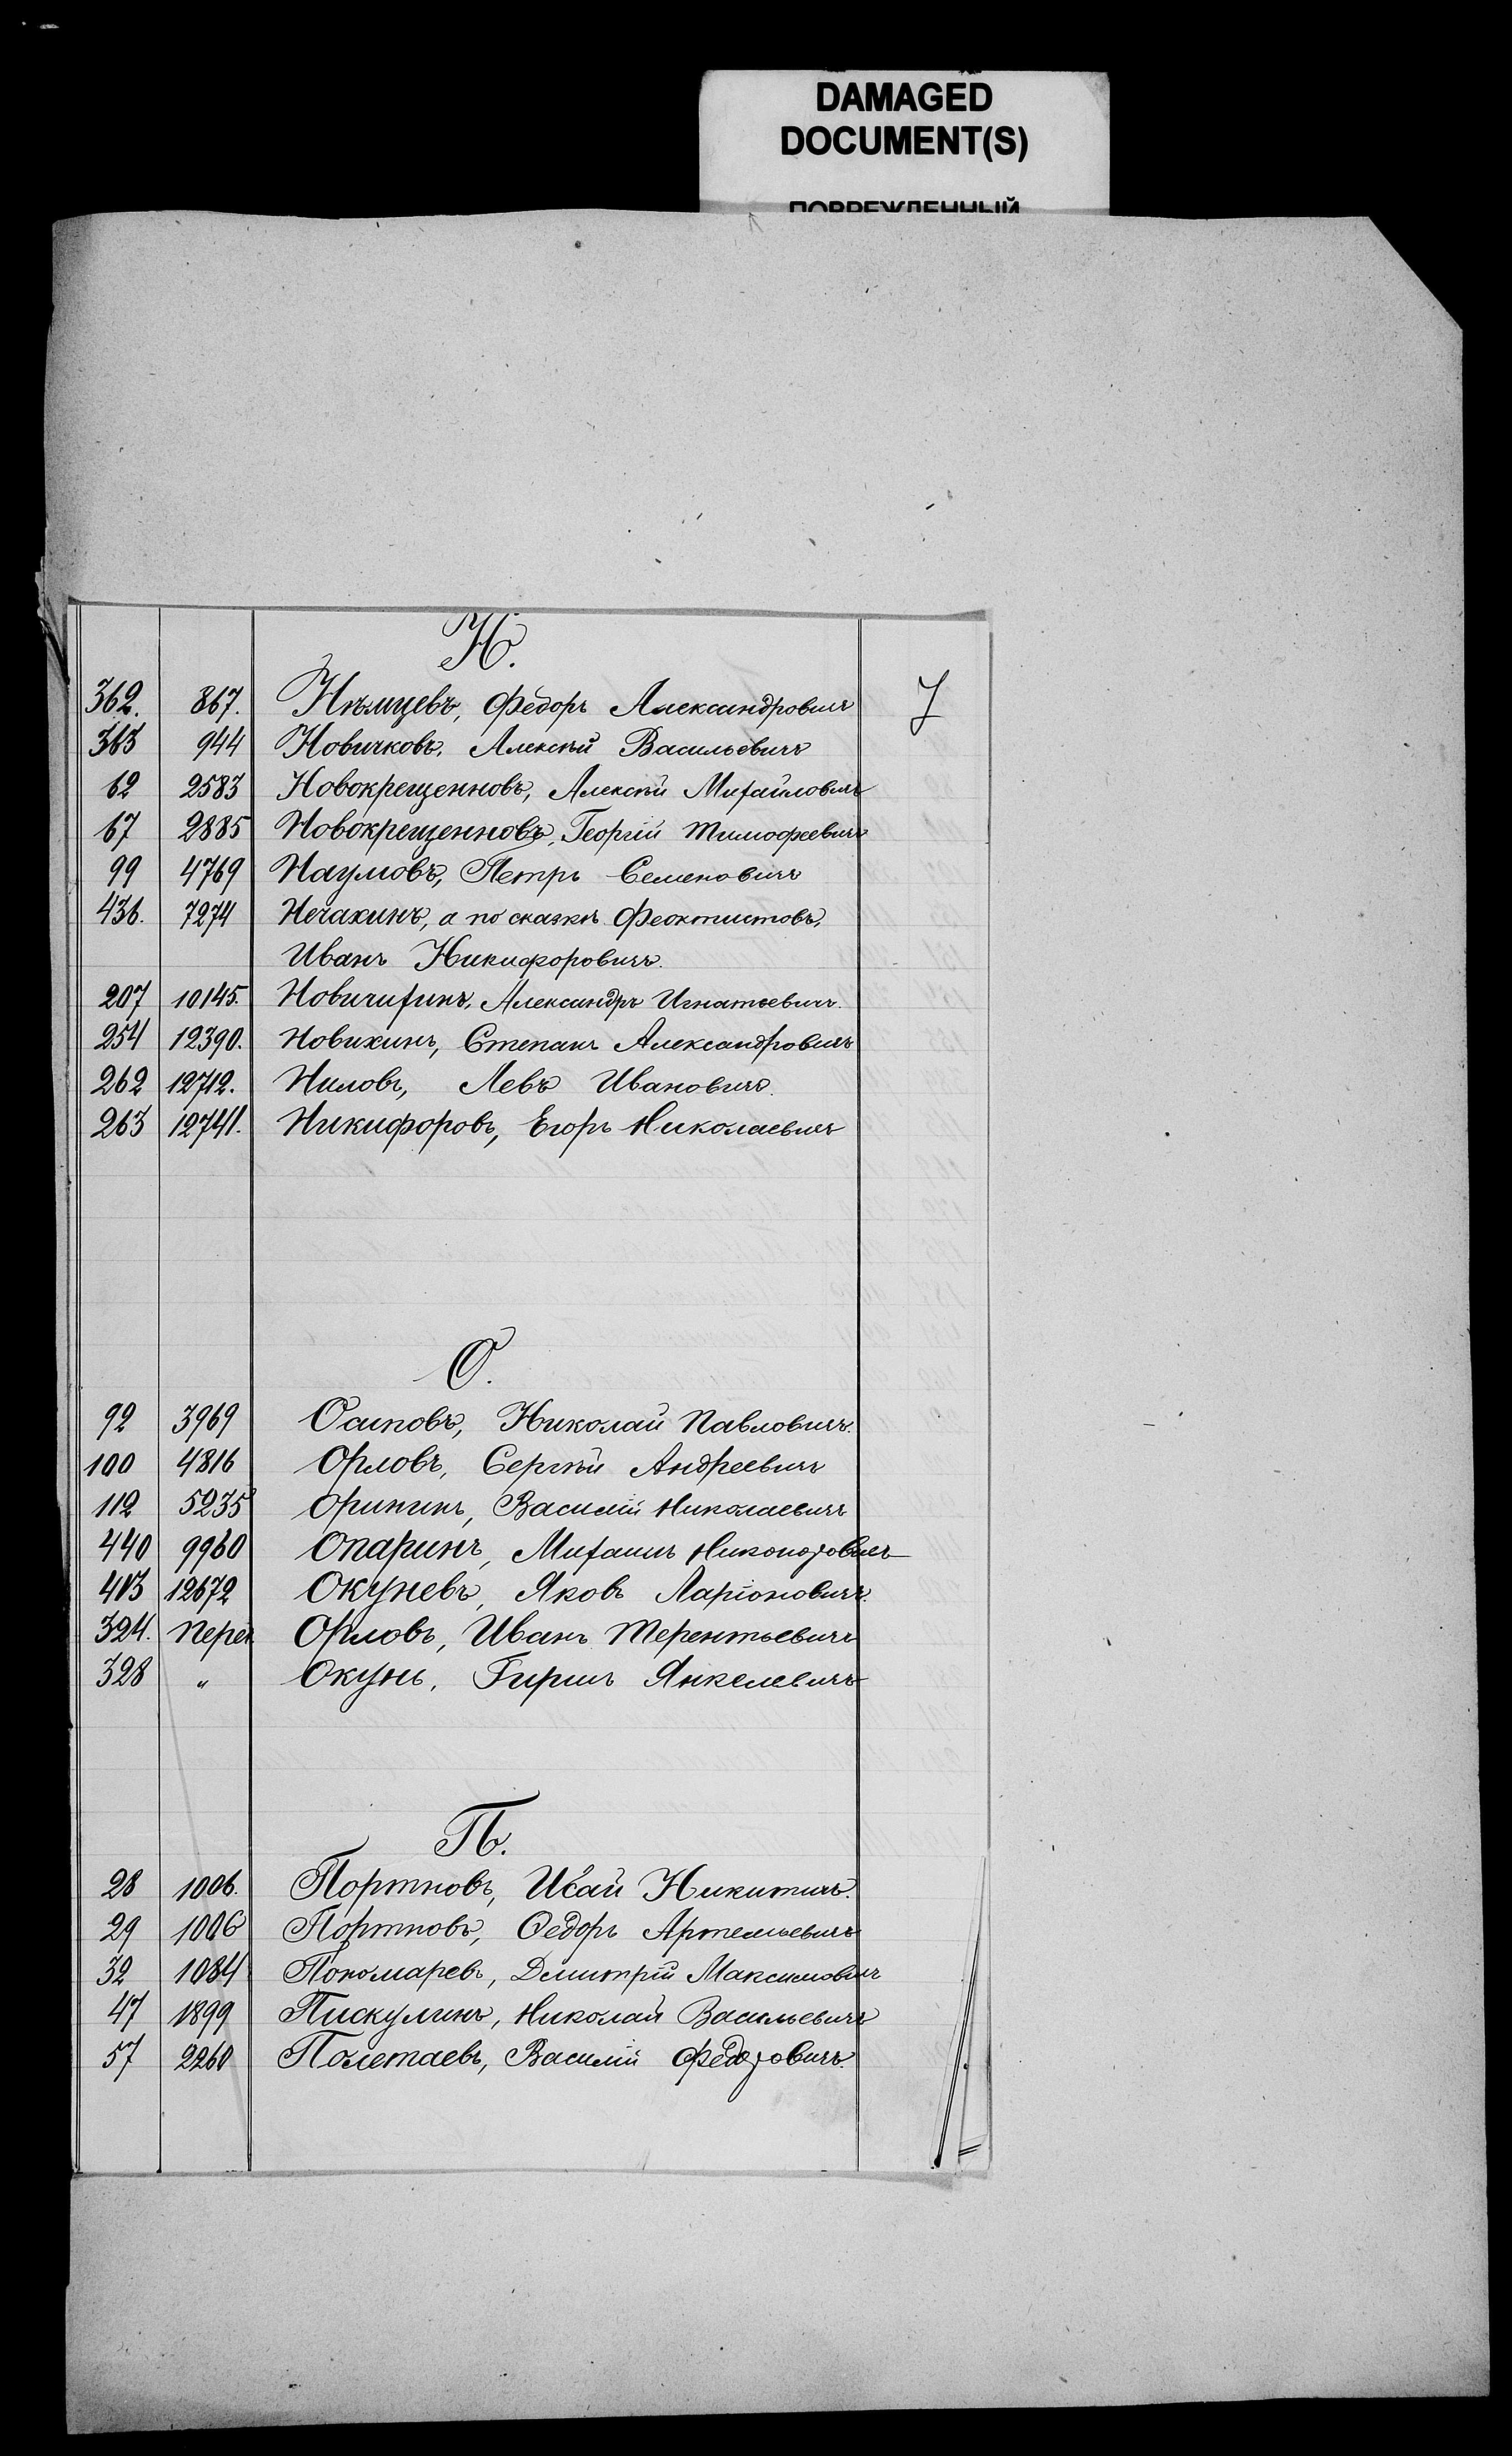 DAMAGED
DOCUMENT(S)
ПОВРЕЖДЕННЫЙ
Н.
362. 867. Нѣмцевъ, Федоръ Александровичъ
363 944 Новичковъ, Алексѣй Васильевичъ
62 2583 Новокрещенновъ, Алексѣй Михайловичъ
67 2885 Новокрещенновъ, Георгій Тимофеевичъ
99 4769 Наумовъ, Петръ Семеновичъ
436. 7274 Нечахинъ, а по сказкѣ Феоктистовъ,
Иванъ Никифоровичъ.
207 10145. Новичихинъ, Александръ Игнатьевичъ.
254 12390. Новихинъ, Степанъ Александровичъ
262 12712. Ниловъ, Левъ Ивановичъ.
263 12741. Никифоровъ, Егоръ Николаевичъ
О.
92 3969 Осиповъ, Николай Павловичъ.
100 4816 Орловъ, Сергѣй Андреевичъ
112 5235 Орининъ, Василій Николаевичъ
440 9960 Опаринъ, Михаилъ Никоноровичъ
413 12672 Окуневъ, Яковъ Ларіоновичъ.
324. Перек Орловъ, Иванъ Терентьевичъ
328 „ Окунь, Гиршъ Янкелевичъ
П.
28 1006. Портновъ, Исай Никитичъ.
29 1006 Портновъ, Ѳедоръ Артемьевичъ
32 1084 Пономаревъ, Дмитрій Максимовичъ
47 1899 Пискулинъ, Николай Васильевичъ
57 2260 Полетаевъ, Василій Федоровичъ.